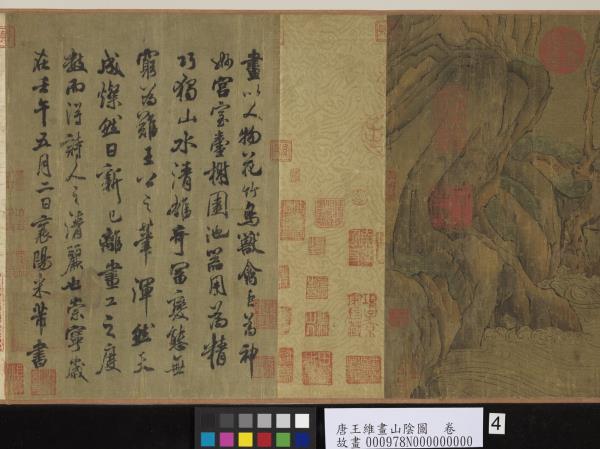 畫以人物花竹鳥獸禽虫為神
妙宮室臺榭園池器用為精
巧獨山水清雄奇冨變態無
窮為難王公之筆渾然天
成燦然日新已離畫工之度
數而得詩人之清麗也崇寧歲
在壬午五月二日襄陽米芾書
唐王維畫山陰圖 卷
故畫000978N000000000
4